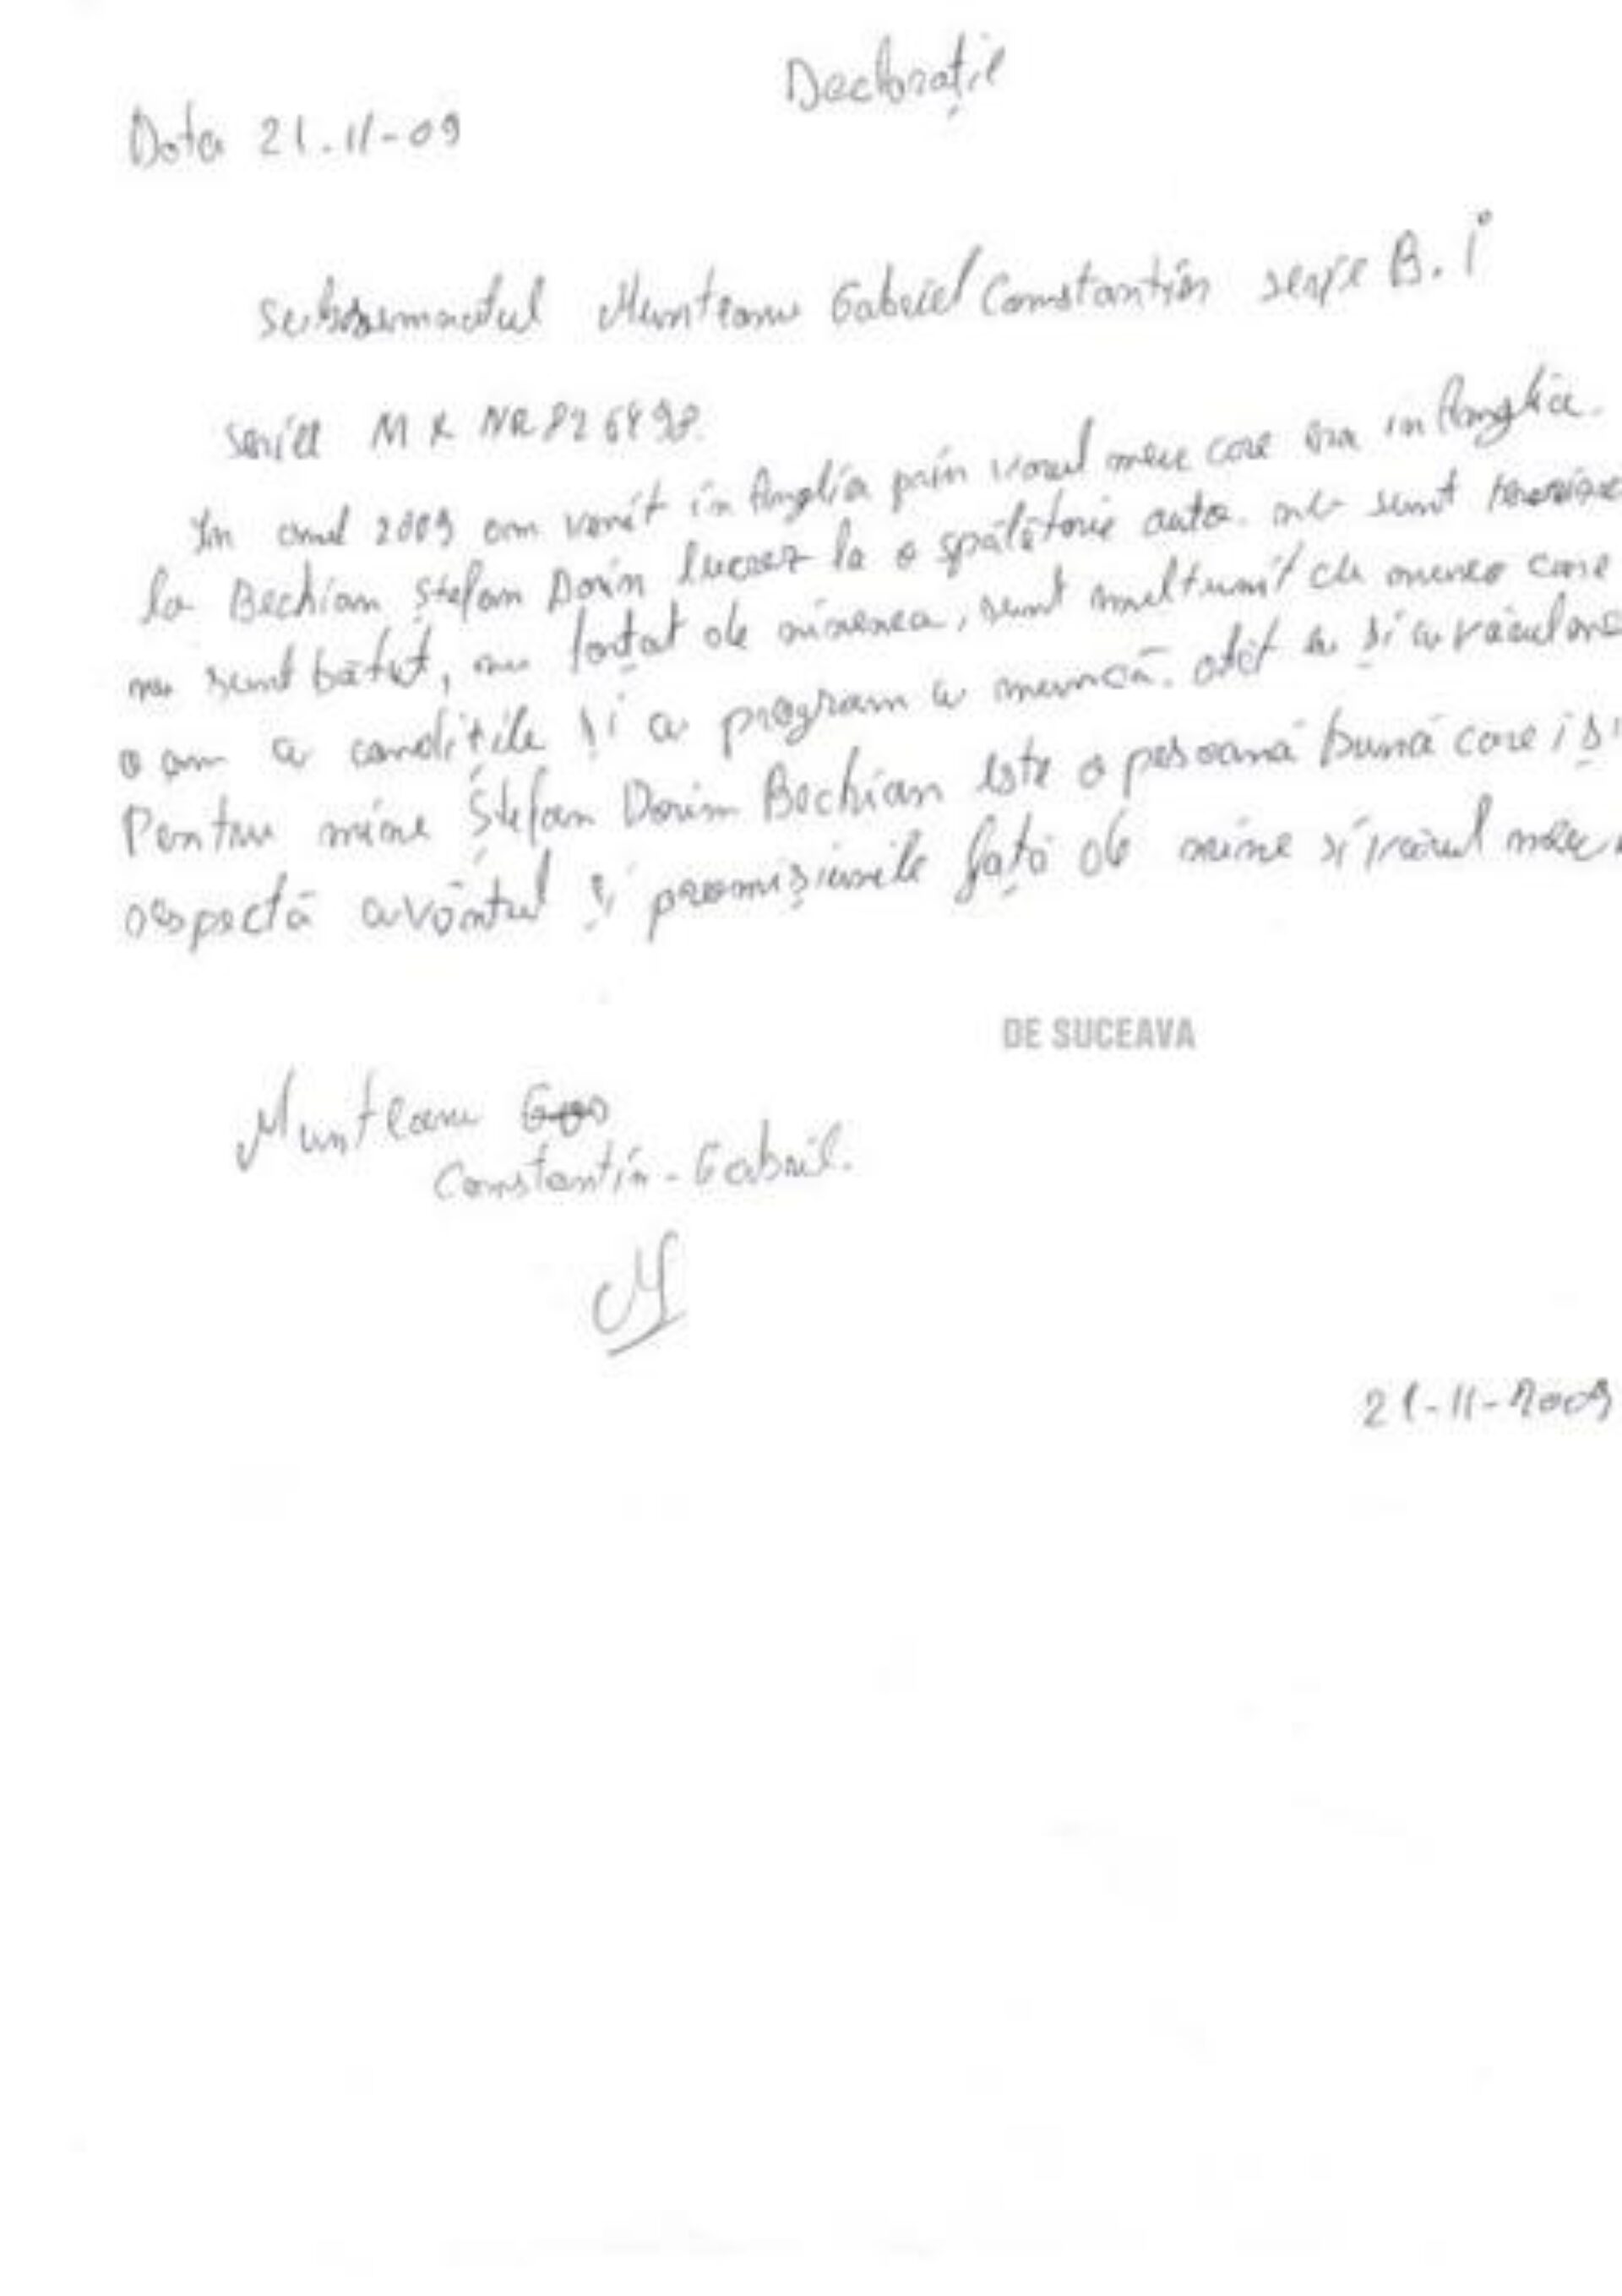 Declorație
Data 21.11-09
subsemnatul Munteanu Gabriel Constantin serie B.i
seria M X NR 826498.
In anul 2009 am venit in Anglia prin varul meu care era in Anglia.
la Bechian Ștefan Dorin lucrez la o spălătorie auto. nu sunt
nu sunt bătut, nu forțat de nimenea, sunt multumit cu care
o am a condițile și a program a muncă. atît și
Pentru mine Ștefan Dorin Bechian este o pesoană bună care iși
respectă avântul și promisiunile față de mine si vărul meu
DE SUCEAVA
Munteanu
Constantin-Gabriel.
M
21-11-2009